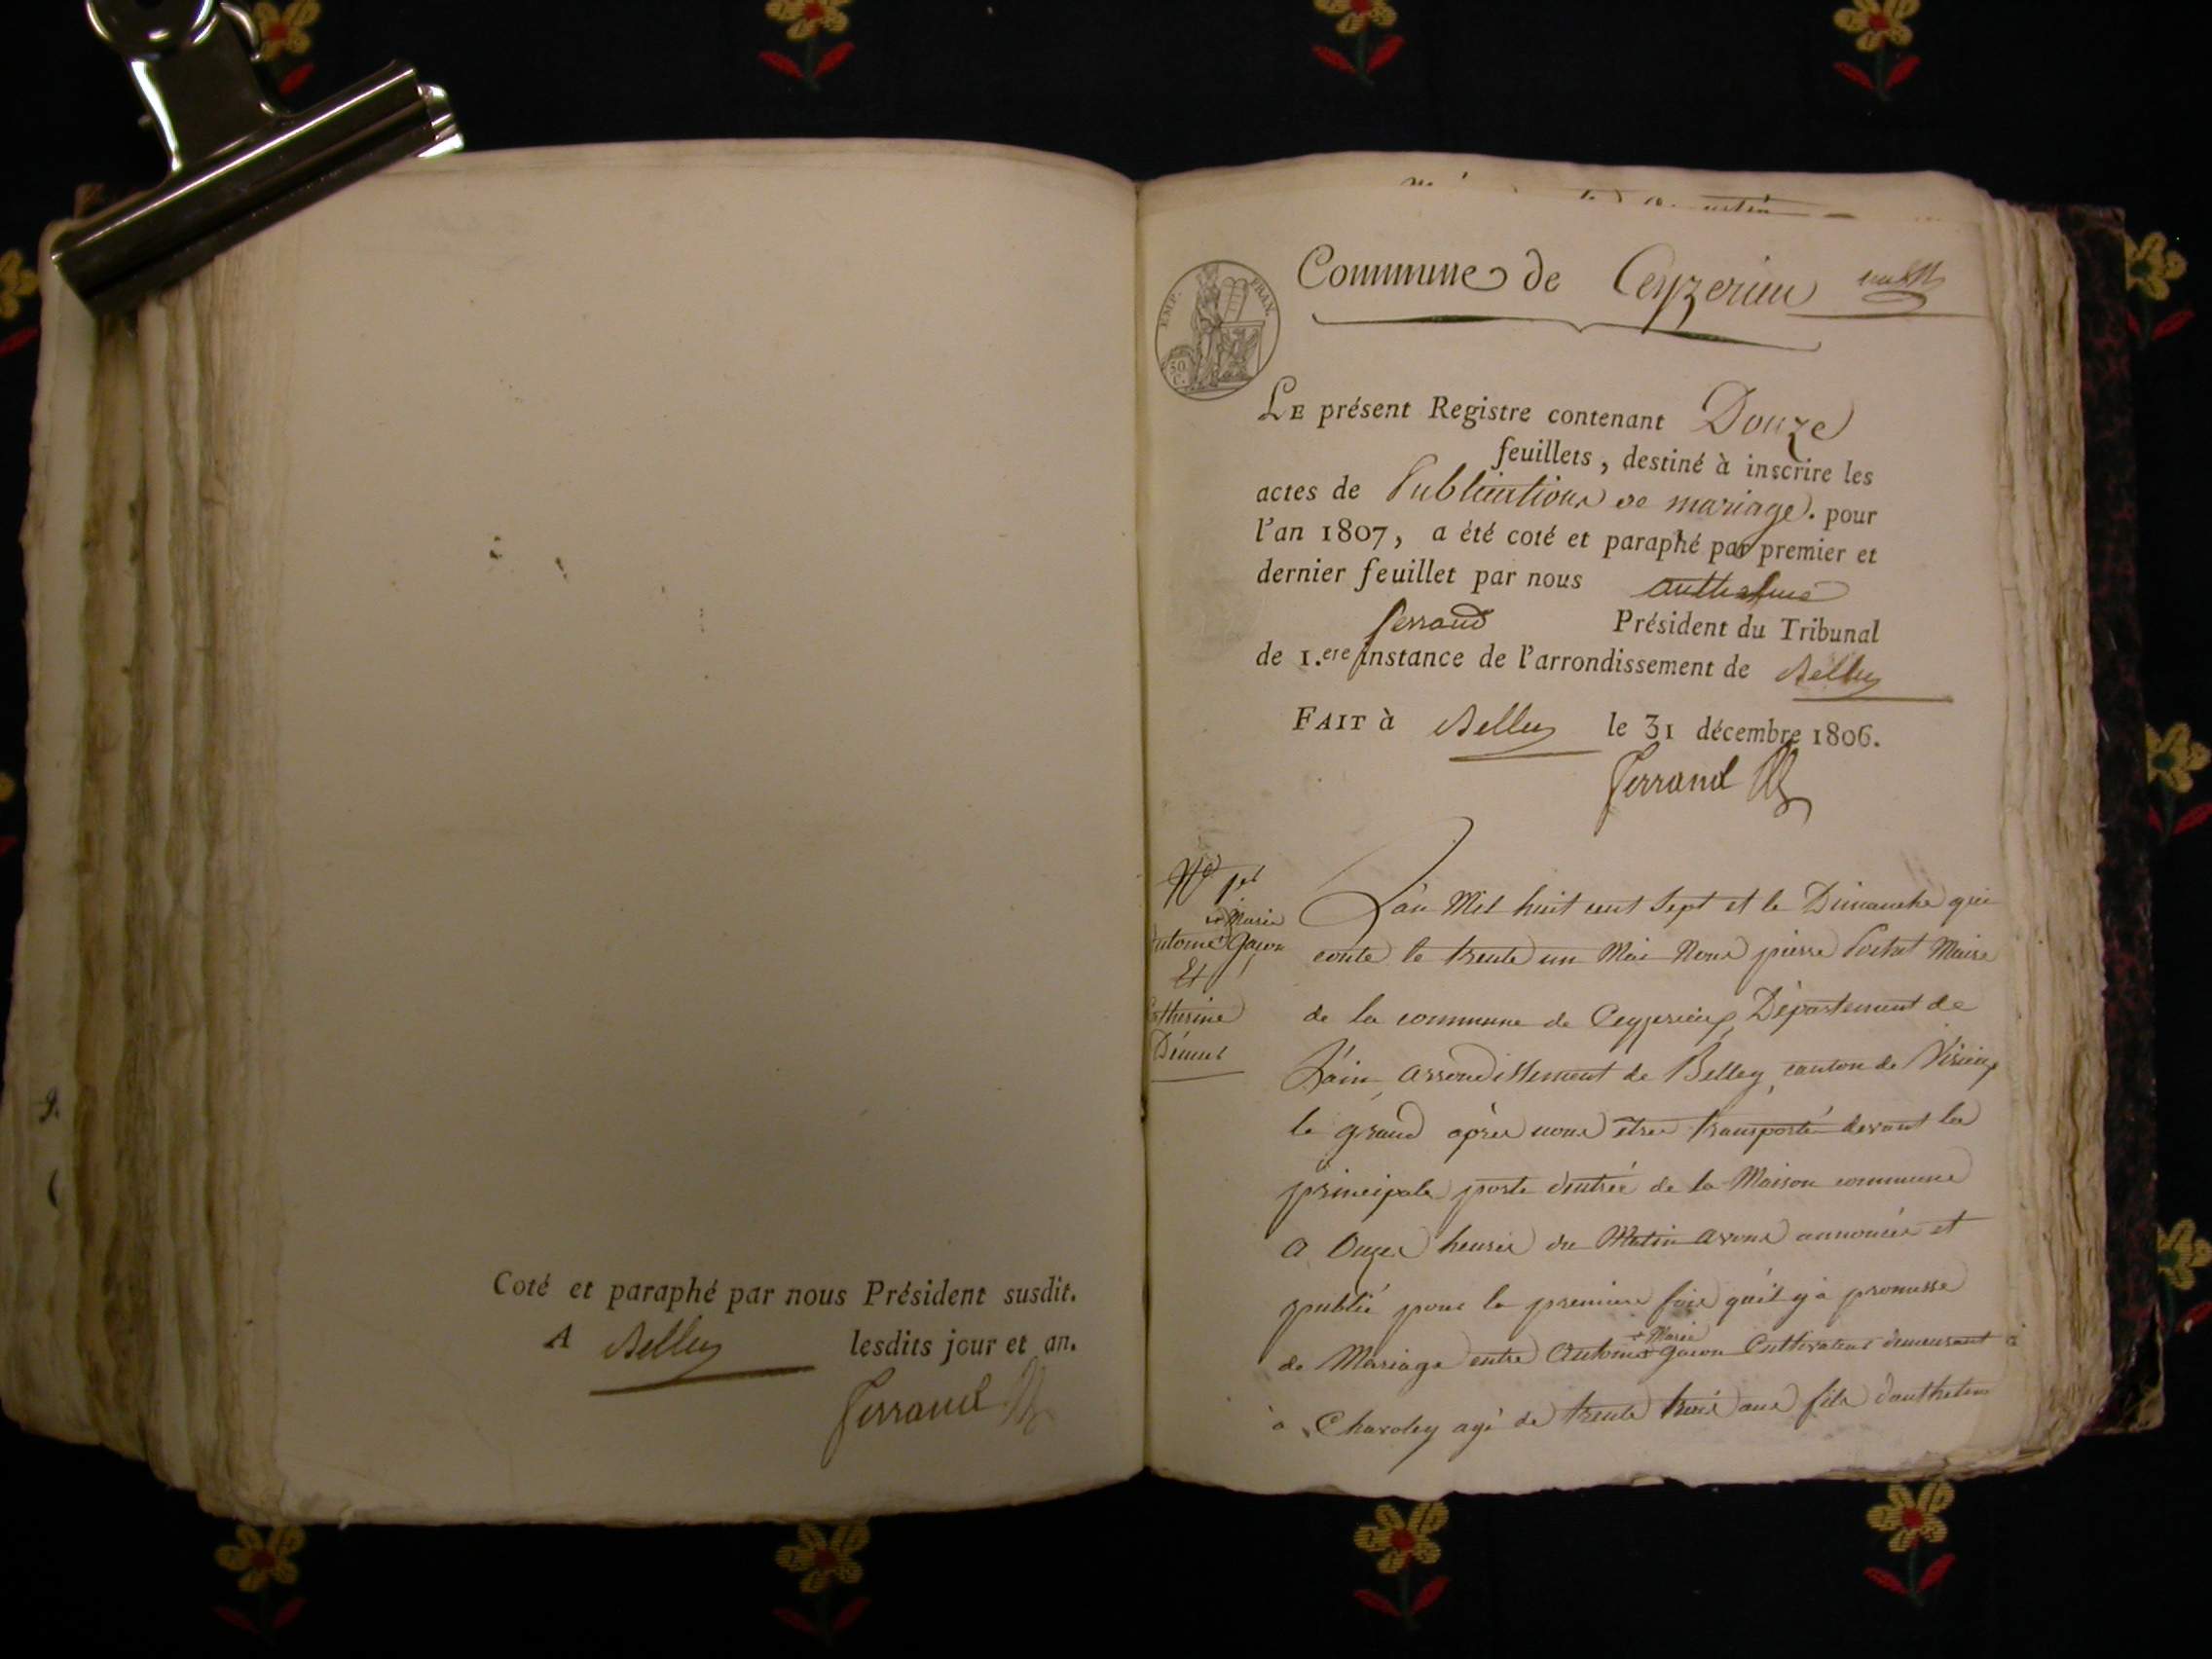 Coté et paraphé par nous Président susdit.
A Belley lesdits jour et an.
Ferrand
EMP. FRAN.
50
C.
Commune de Ceyzerieu
LE présent Registre contenant Douze
feuillets, destiné à inscrire les
actes de Publications de mariage. pour
l'an 1807, a été coté et paraphé par premier et
dernier feuillet par nous Anthelme
ferrand Président du Tribunal
de 1.ere instance de l'arrondissement de Belley
FAIT à Belley le 31 décembre 1806.
Ferrand
No 1er
Marie
antoine gacon
Et
Catherine
L'an Mil huit cent Sept et le Dimanche qui
conte le trente un Mai Nous pierre Maire
de la commune de Ceyzerieu, Département de
L'ain, arrondissement de Belley, canton de Virieu
le grand après nous être transporté devant la
principale porte d'entrée de la Maison commune
a Onze heures du Matin avons annoncé et
publié pour la premiere fois qu'il y a promesse
+ Marie
de Mariage entre Antoine + gacon Cultivateur demeurant à
à Chavoley agé de trente trois ans fils d'anthelme